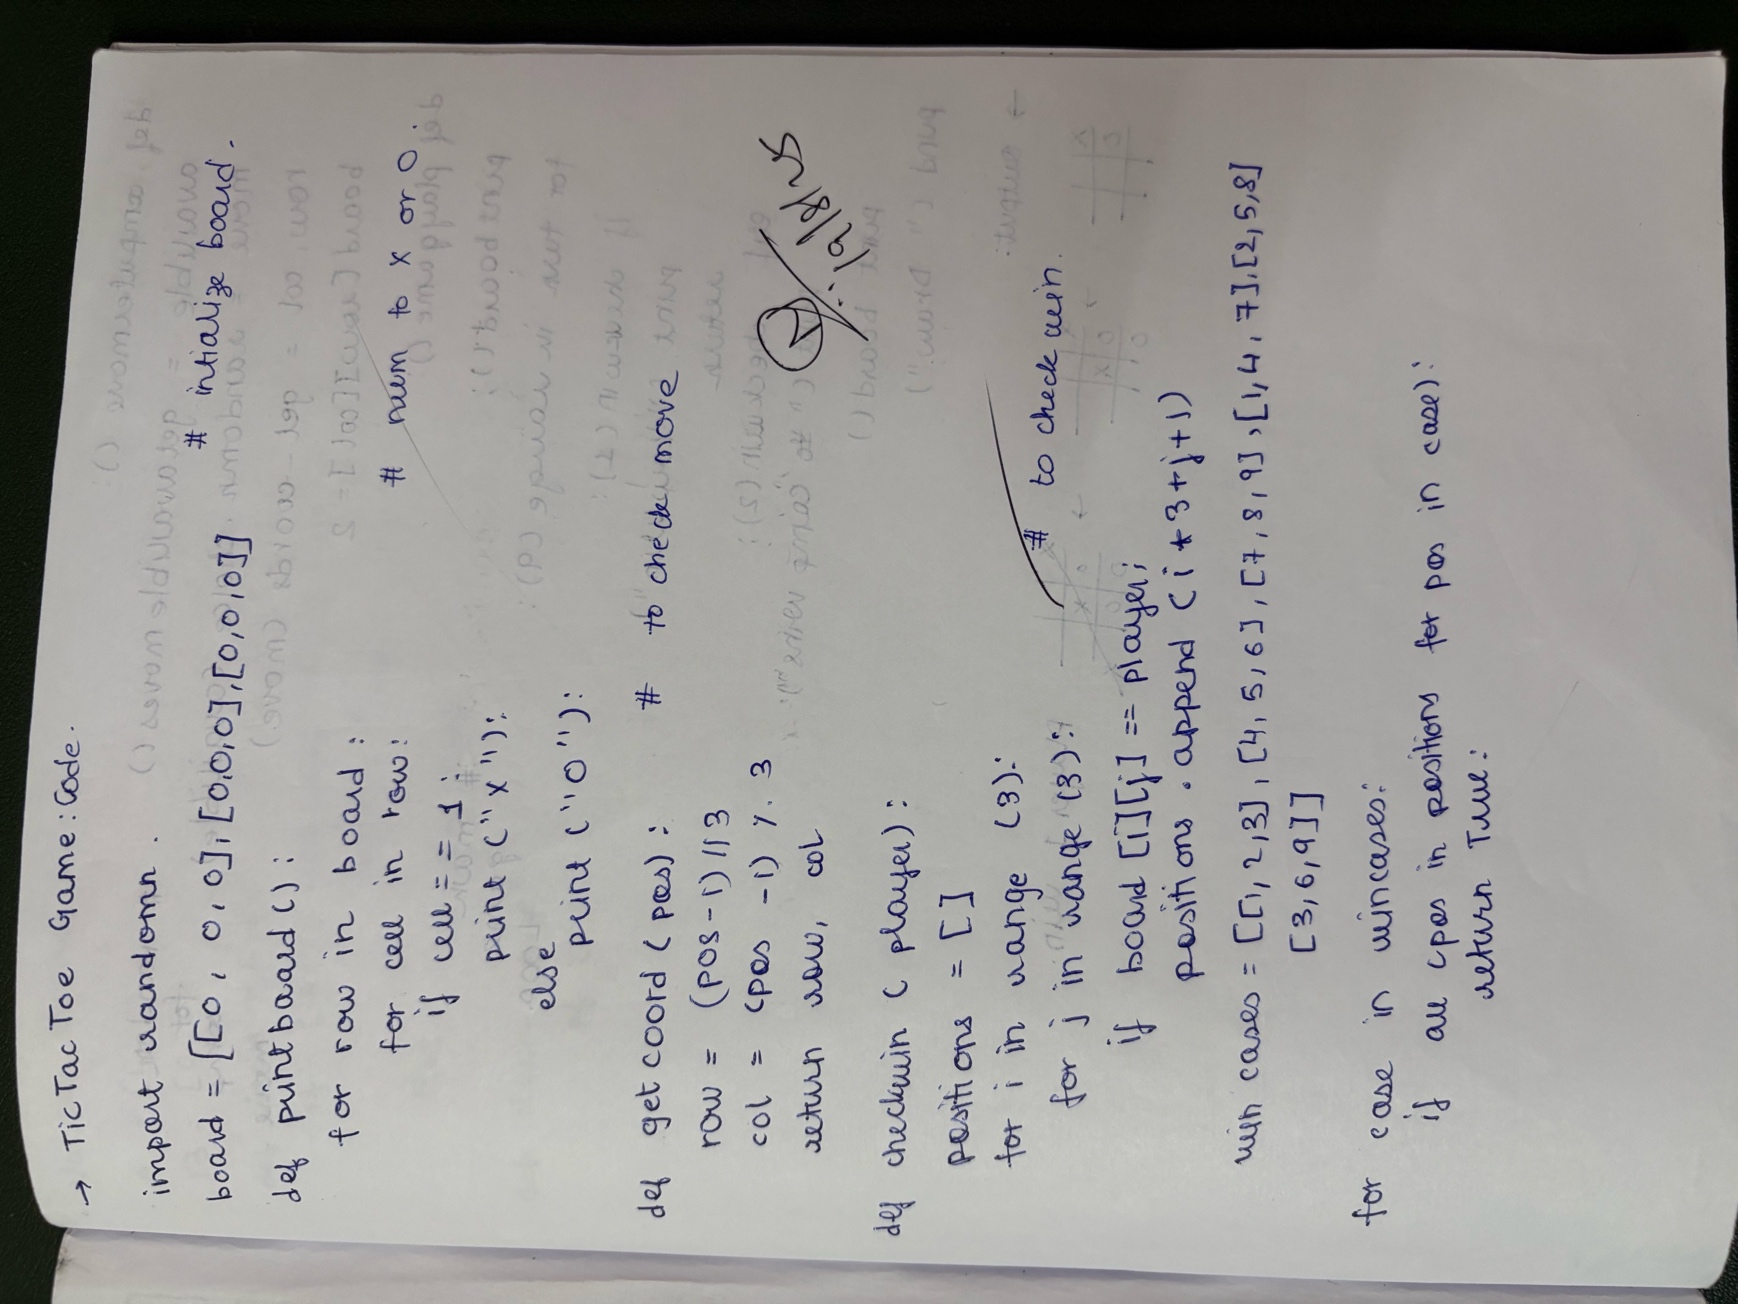 → TicTacToe Game: Code.
import random.
board = [[0, 0, 0], [0,0,0], [0,0,0]]
# intialize board.
def printboard():
for row in board:
for cell in row:
# num to x or 0.
if cell == 1:
print("x"):
else
print("0"):
def getcoord (pos): # to check move
row = (pos-1)//3
col = (pos -1) % 3
return row, col
19/8/25
def checkwin (player):
positions = []
for i in range (3):
for j in range (3): # to check win.
if board [i][j] == player:
positions.append (i*3+j+1)
win cases = [[1,2,3], [4,5,6], [7,8,9], [1,4,7], [2,5,8]
[3,6,9]]
for case in wincases:
if all (pos in positions for pos in case):
return True: